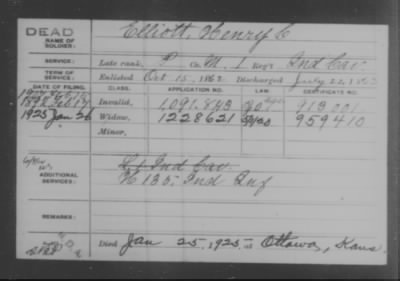 DEAD
NAME OF SOLDIER:
Elliott, Henry C
SERVICE:
Late rank, P Co. M, 1 Reg't Ind Cav
TERM OF SERVICE:
Enlisted Oct 15, 1862 Discharged July 22, 1863
DATE OF FILING. CLASS. APPLICATION NO. LAW. CERTIFICATE NO.
1892 Feb 17 Invalid, 1091.843 913.001
1925 Jan 26 Widow, 1228621 959410
Minor,
ADDITIONAL SERVICES:
L, 1 Ind Cav.
K 135 Ind Inf
REMARKS:
Died Jan 25, 1925, at Ottawa, Kans